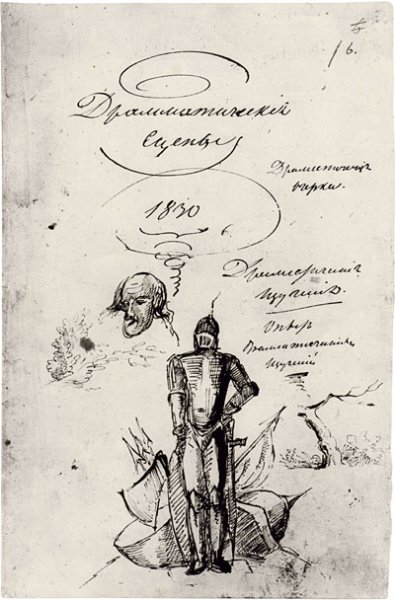 16.
Драмматическія
Сцены
Драматическіе
очерки.
1830
Драматическія
изученія
Опыт
драматических
изучений